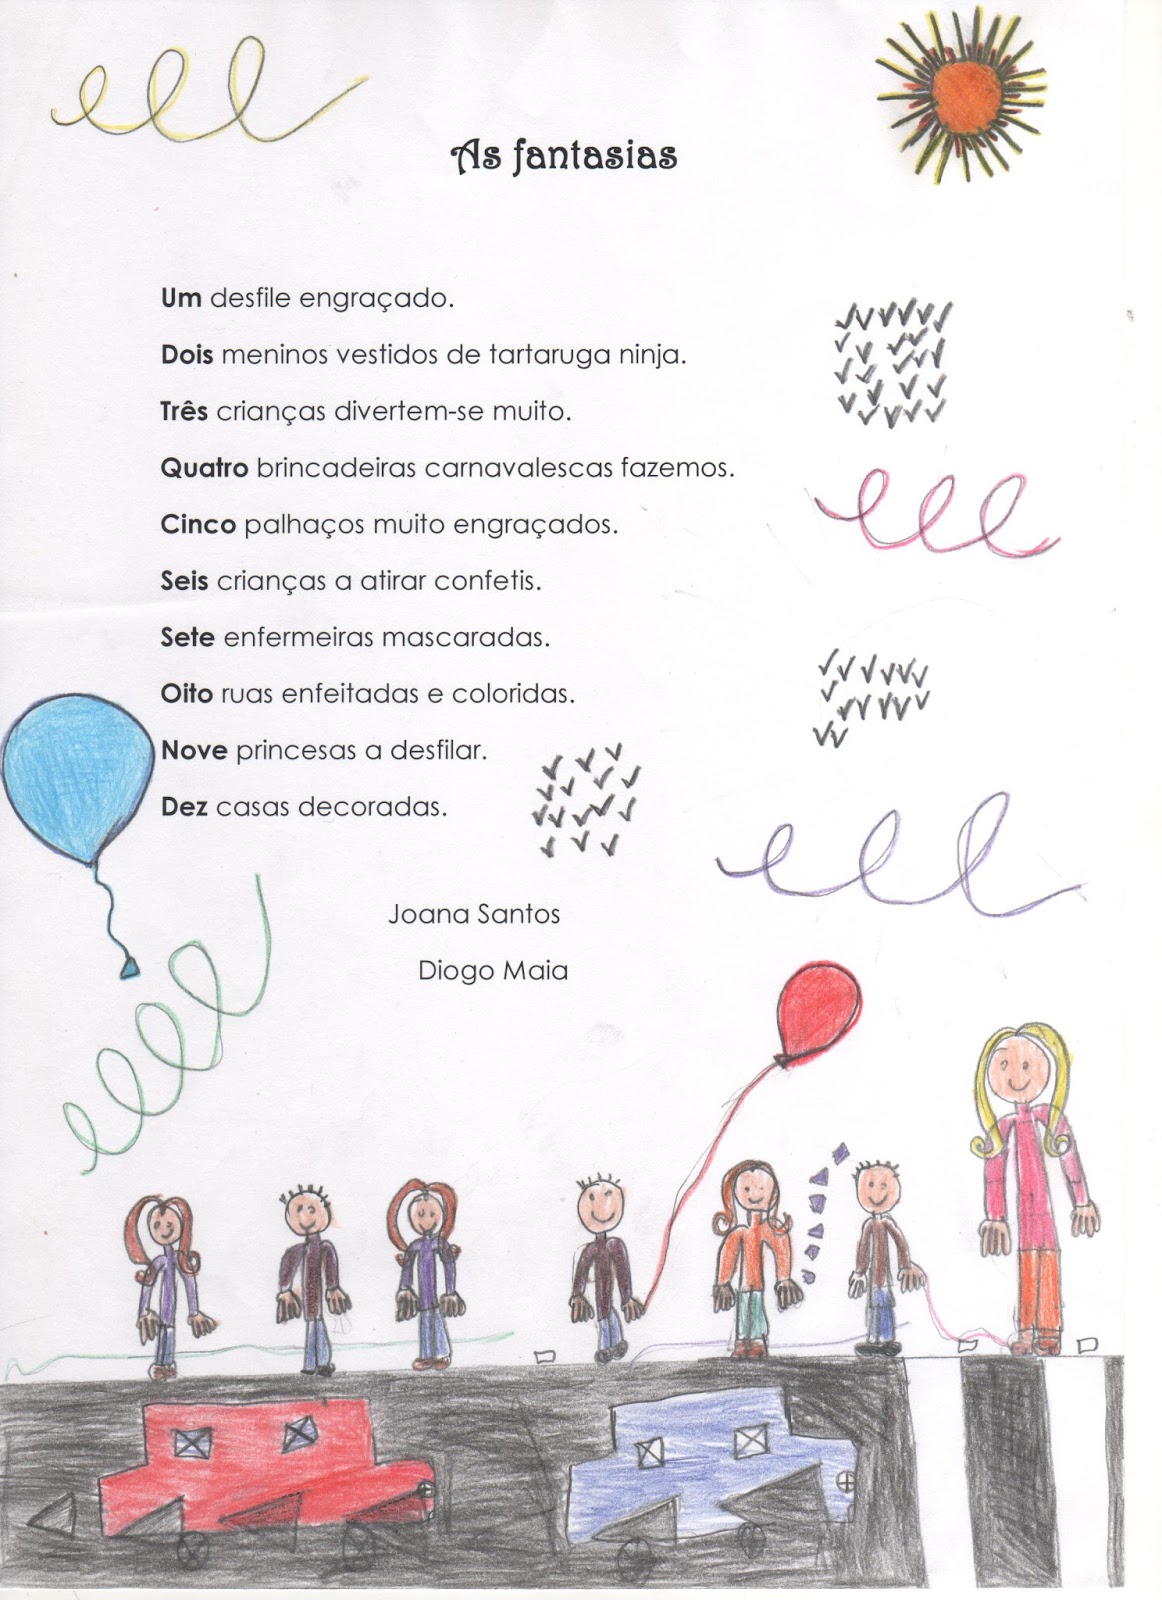 As fantasias
Um desfile engraçado.
Dois meninos vestidos de tartaruga ninja.
Três crianças divertem-se muito.
Quatro brincadeiras carnavalescas fazemos.
Cinco palhaços muito engraçados.
Seis crianças a atirar confetis.
Sete enfermeiras mascaradas.
Oito ruas enfeitadas e coloridas.
Nove princesas a desfilar.
Dez casas decoradas.
Joana Santos
Diogo Maia